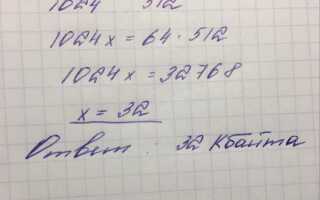 1024 512
1024x = 64 · 512
1024x = 32768
x = 32
Ответ : 32 Кбайта